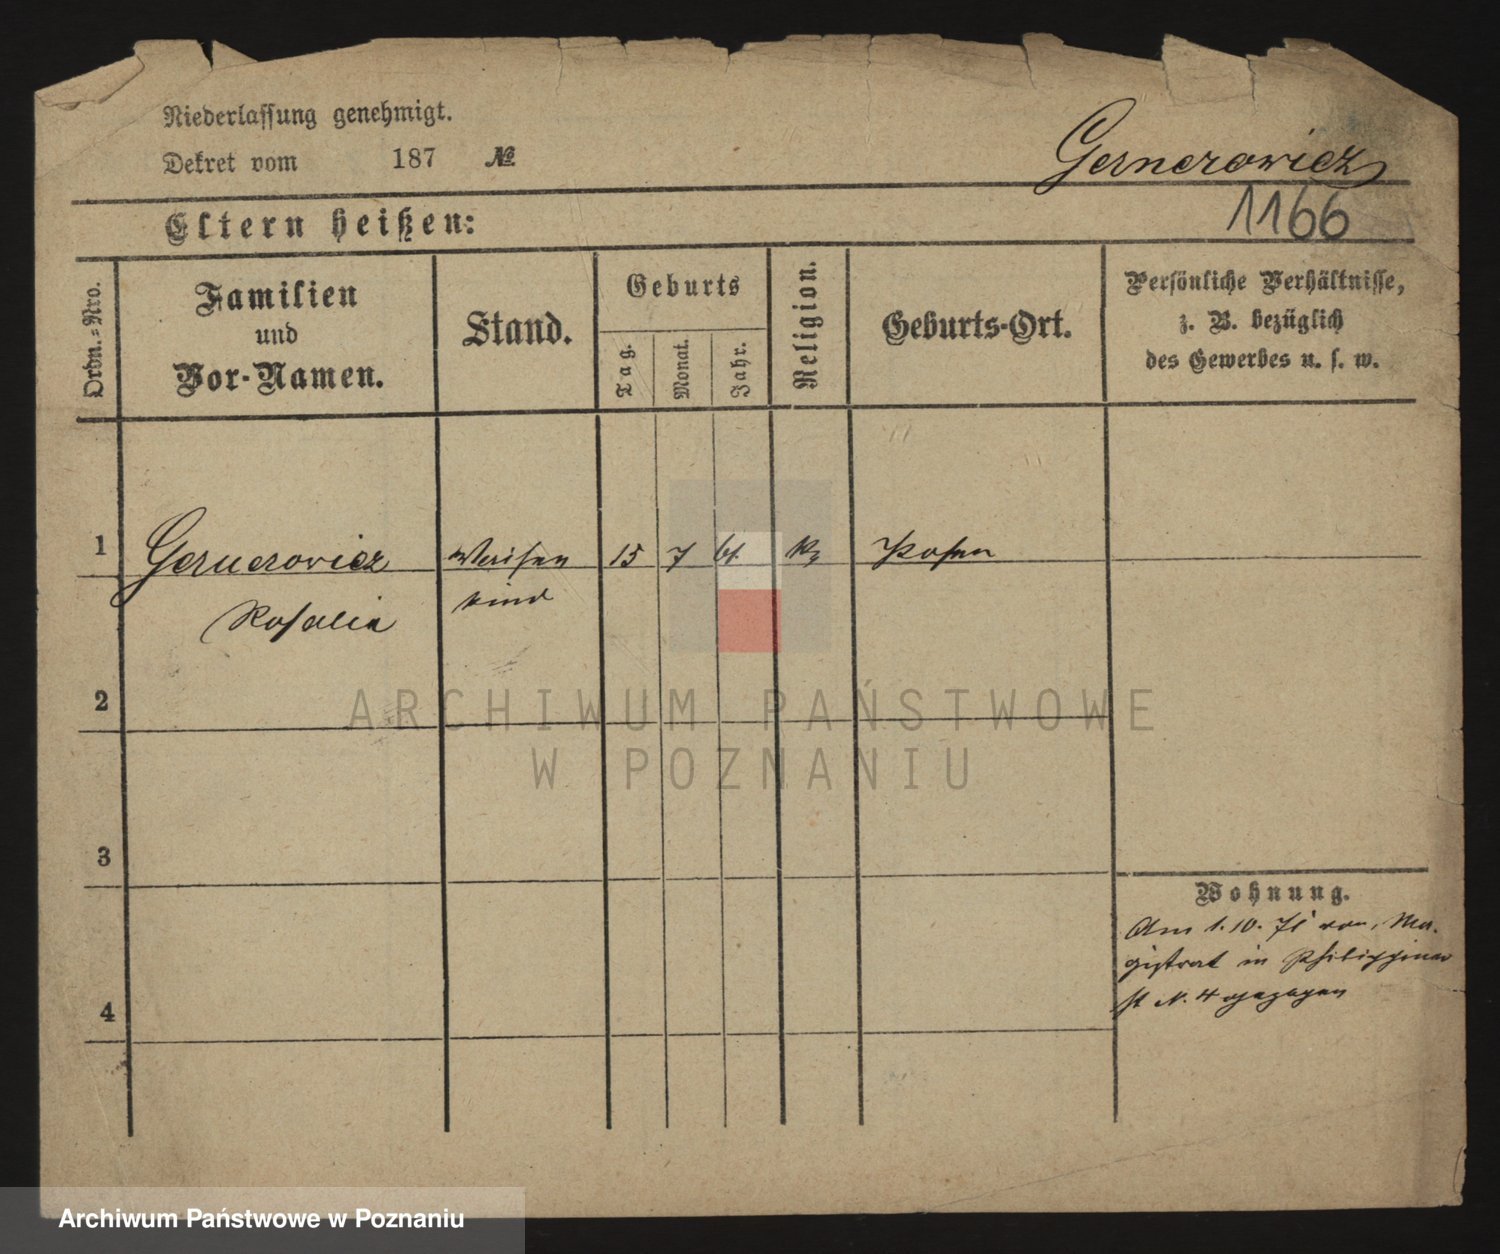 Niederlassung genehmigt.
Dekret vom 187 №
Gernerowicz
1166
Eltern heißen:
Ordn.-Nro.
Familien
und
Vor-Namen.
Stand.
Geburts
Tag.
Monat.
Jahr.
Religion.
Geburts-Ort.
Persönliche Verhältnisse,
z. B. bezüglich
des Gewerbes u. s. w.
1 Gernerowicz Waisen 15 7 61. Posen
Rosalia kind
2
3
4
Wohnung.
Am 1. 10. 71 Ma-
gistrat in Philippinen
st N. 4 gezogen
ARCHIWUM PAŃSTWOWE
W POZNANIU
Archiwum Państwowe w Poznaniu